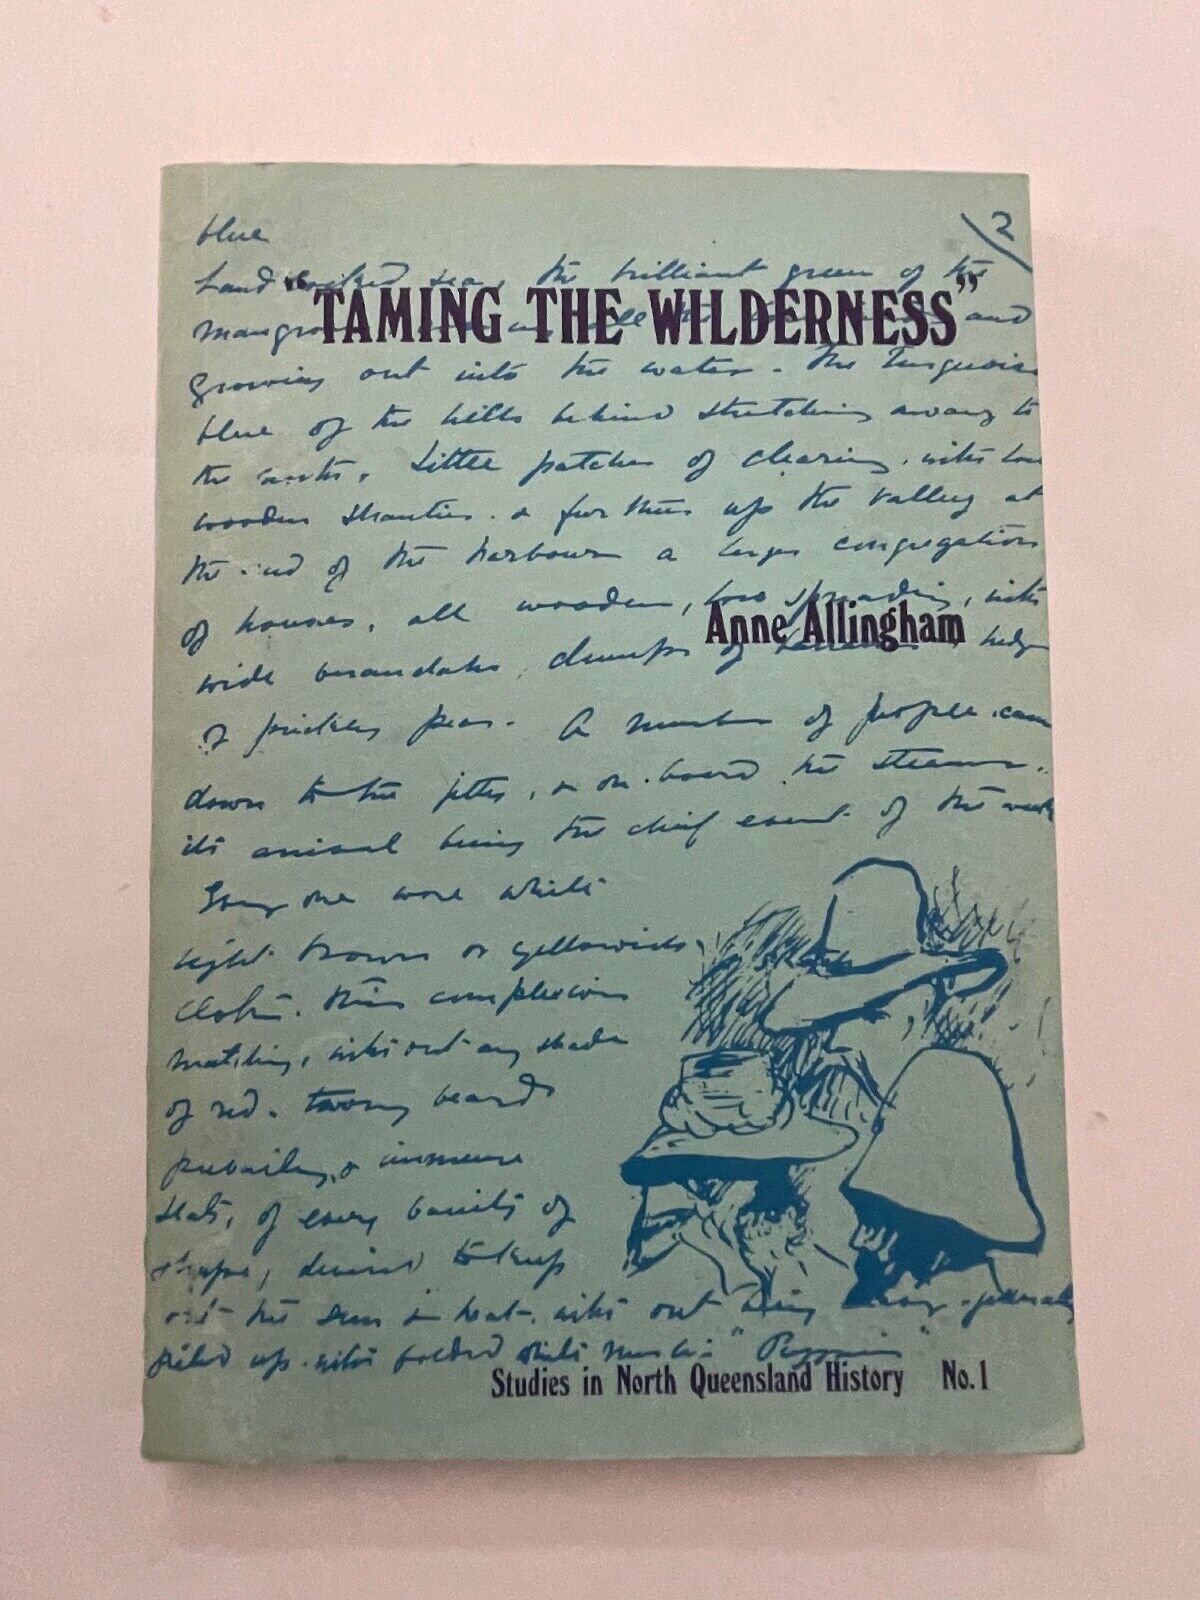 2
blue
Land locked sea, the brilliant green of the
"TAMING THE WILDERNESS"
and
growing out into the water. The turquoise
blue of the hills behind stretching away to
the south. Little patches of clearing, with low
wooden shanties. & further up the valley at
the end of the harbour a larger congregation
of houses, all wooden, low spreading, with
Anne Allingham
wide verandahs, clumps of hedges
of prickly pear. A number of people came
down to the jetty, & on board the steamer.
its arrival being the chief event of the week
Every one wore white
light brown or yellowish
clothes. Their complexions
matching, without any shade
of red. tawny beards
prevailing, & immense
hats, of every variety of
shape, desired to keep
out the sun & heat. without being generally
piled up with folded white muslin "
Studies in North Queensland History No.1